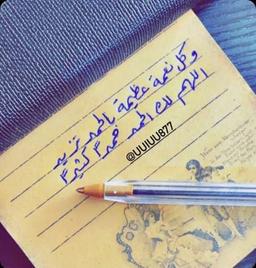 وكل نعمة عظيمة بالحمد تزيد
اللهم لك الحمد حمداً كثيراً
@UUIUU877